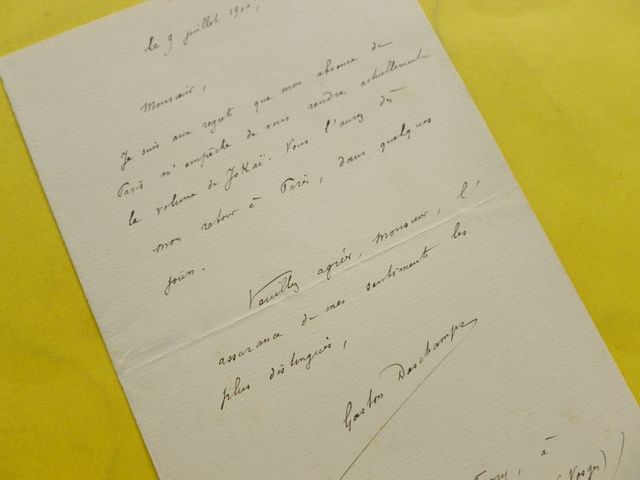 Le 9 juillet 1900,
Monsieur,
Je suis aux regrets que mon absence de
Paris m'empêche de vous rendre actuellement
le volume de Jokaï. Vous l'aurez dès
mon retour à Paris, dans quelques
jours.
Veuillez agréer, monsieur, l'
assurance de mes sentiments les
plus distingués,
Gaston Deschamps
à
(Vosges)